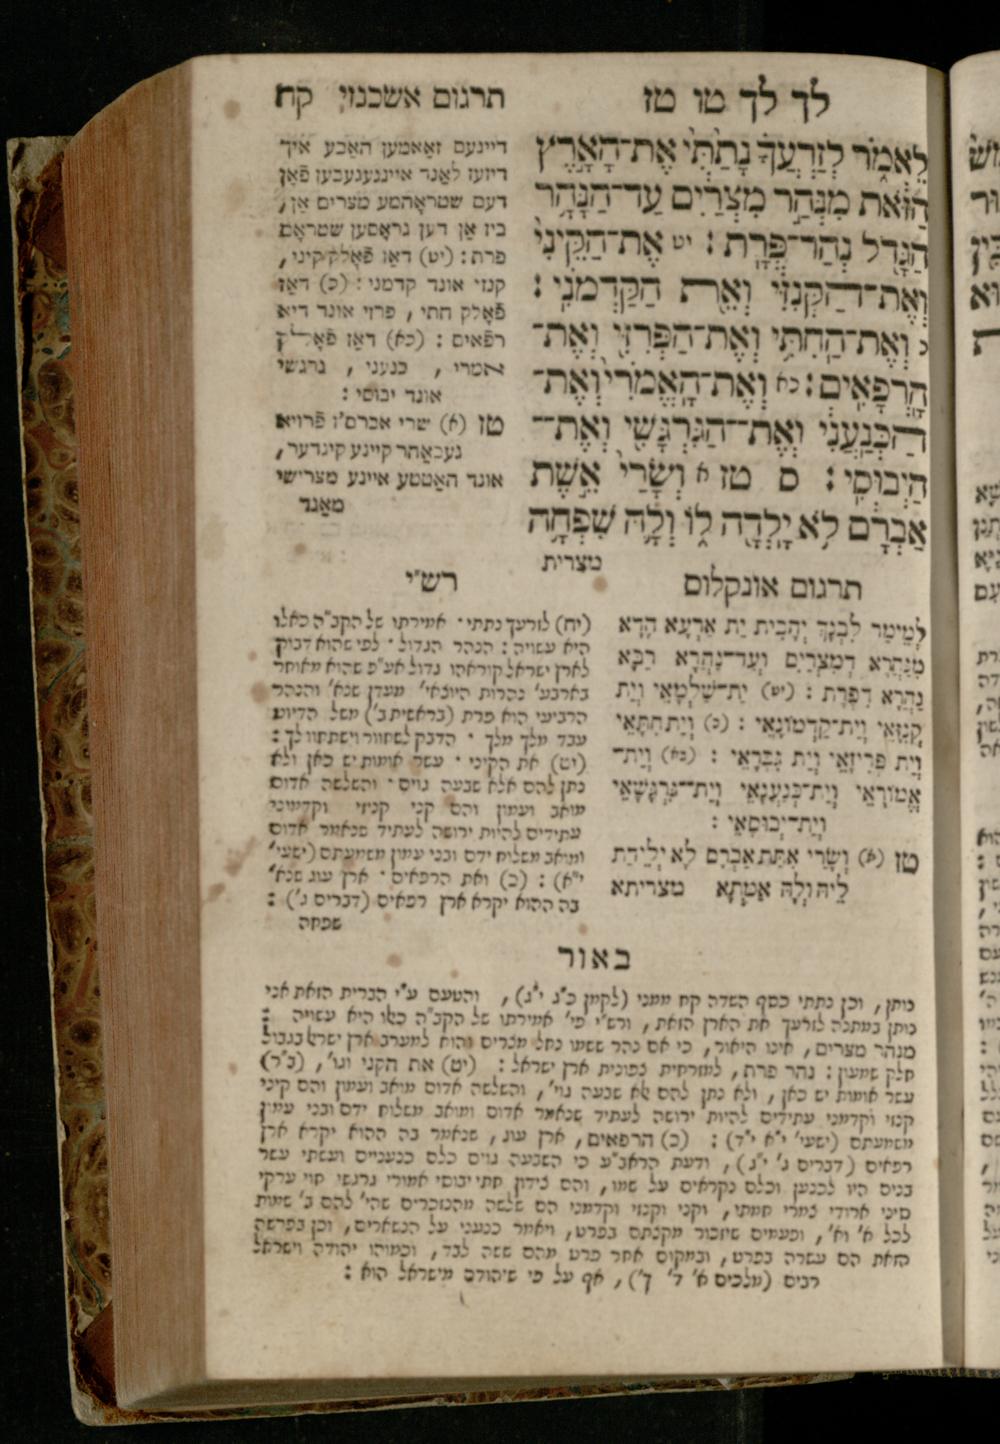 לך לך טו טז
לֵאמֹ֑ר לְזַרְעֲךָ֗ נָתַ֙תִּי֙ אֶת־הָאָ֣רֶץ
הַזֹּ֔את מִנְּהַ֣ר מִצְרַ֔יִם עַד־הַנָּהָ֥ר
הַגָּדֹ֖ל נְהַר־פְּרָֽת : יט אֶת־הַקֵּינִי֙
וְאֶת־הַקְּנִזִּ֔י וְאֵ֖ת הַקַּדְמֹנִֽי :
כ וְאֶת־הַחִתִּ֥י וְאֶת־הַפְּרִזִּ֖י וְאֶת־
הָרְפָאִֽים : כא וְאֶת־הָֽאֱמֹרִי֙ וְאֶת־
הַֽכְּנַעֲנִ֔י וְאֶת־הַגִּרְגָּשִׁ֖י וְאֶת־
הַיְבוּסִֽי : ס טז א וְשָׂרַי֙ אֵ֣שֶׁת
אַבְרָ֔ם לֹ֥א יָלְדָ֖ה ל֑וֹ וְלָ֛הּ שִׁפְחָ֥ה
מצרית
תרגום אשכנזי קח
דיינעם זאאמען האבע איך
דיזעז לאנד איינגעגעבען פֿאן
דעם שטראהמע מצרים אן,
ביז אן דען גראסען שטראם
פרת : (יט) דאז פֿאלק קיני,
קנזי אונד קדמני : (כ) דאז
פֿאלק חתי , פרזי אונד דיא
רפֿאים : (כא) דאז פֿאלק
אמרי , כנעני , גרגשי
אונד יבוסי :
טז (א) שרי אברם'ז פֿרויא
געבאהר קיינע קינדער,
אונד האטטע איינע מצרישי
מאגד
תרגום אונקלוס
לְמֵימַר לִבְנָךְ יְהָבִית יָת אַרְעָא הָדָא
מִנַּהֲרָא דְמִצְרַיִם וְעַד־נַהֲרָא רַבָּא
נַהֲרָא דִפְרָת : (יט) יָת־שַׁלְמָאֵי וְיָת
קְנִזָּאֵי וְיָת־קַדְמוֹנָאֵי : (כ) וְיָת חִתָּאֵי
וְיָת פְּרִיזָאֵי וְיָת גִּבָּרָאֵי : (כא) וְיָת־
אֱמוֹרָאֵי וְיָת־כְּנַעֲנָאֵי וְיָת־גִּרְגָּשָׁאֵי
וְיָת־יְבוּסָאֵי :
טז (א) וְשָׂרַי אִתַּת אַבְרָם לָא יְלֵידַת
לֵיהּ וְלָהּ אַמְתָא מצריתא
רש"י
(יח) לזרעך נתתי · אמירתו של הקב"ה כאלו
היא עשויה : הנהר הגדול · לפי שהוא דבוק
לארץ ישראל קוראהו גדול אע"פ שהוא מאוחר
בארבע' נהרות היוצאי' מעדן שנא' והנהר
הרביעי הוא פרת (בראשית ב') משל הדיוט
עבד מלך מלך · הדבק לשחוור וישתחוו לך :
(יט) את הקיני · עשר אומות יש כאן ולא
נתן להם אלא שבעה גוים · והשלשה אדום
מואב ועמון והם קני קניזי וקדמוני
עתידים להיות ירושה לעתיד שנאמר אדום
ומואב משלוח ידם ובני עמון משמעתם (ישעי'
י"א) : (כ) ואת הרפאים · ארץ עוג שנא'
בה ההוא יקרא ארץ רפאים (דברים ג') :
שפחה
באור
נותן, וכן נתתי כסף השדה קח ממני (לקמן כ"ג י"ג), והטעם ע"י הברית הזאת אני
נותן במתנה לזרעך את הארץ הזאת, ורש"י פי' אמירתו של הקב"ה כאלו היא עשויה :
מנהר מצרים, אינו היאור, כי אם נהר ששמו נחל מצרים והוא למערב ארץ ישראל בגבול
חלק שמעון : נהר פרת, למזרחית צפונית ארץ ישראל : (יט) את הקני וגו', (ב"ר)
עשר אומות יש כאן, ולא נתן להם אלא שבעה גוי', והשלשה אדום מואב ועמון והם קיני
קנזי וקדמני עתידים להיות ירושה לעתיד שנאמר אדום ומואב משלוח ידם ובני עמון
משמעתם (ישעי' י"א י"ד) : (כ) הרפאים, ארץ עוג, שנאמר בה ההוא יקרא ארץ
רפאים (דברים ג' י"ג), ודעת הראב"ע כי השבעה גוים כלם כנעניים ועשתי עשר
בנים היו לכנען וכלם נקראים על שמו, והם צידון חתי יבוסי אמורי גרגשי חוי ערקי
סיני ארודי צמרי חמתי, וקני וקנזי וקדמני הם שלשה מהנזכרים שהי' להם ב' שמות
לכל א' וא', ופעמים שיזכור מקצתם בפרט, ויאמר כנעני על הנשארים, וכן בפרשה
הזאת הם עשרה בפרט, ובמקום אחר פרט מהם ששה לבד, וכמוהו יהודה וישראל
רבים (מלכים א' ד' ך'), אף על פי שיהודה מישראל הוא :